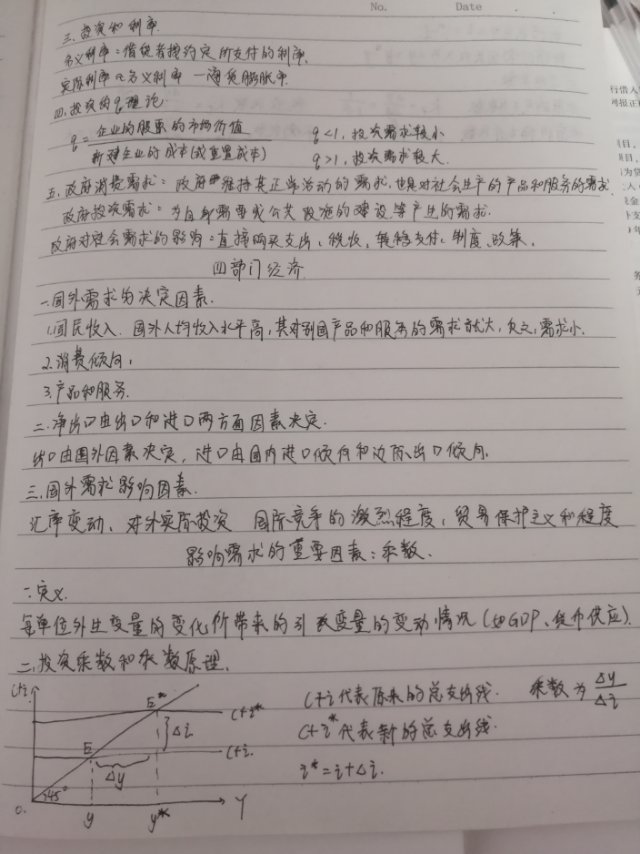 No.    Date
三.投资和利率.
名义利率:借贷者按约定所支付的利率.
实际利率≈名义利率-通货膨胀率.
四.投资的q理论
q=企业的股票的市场价值/新建企业的成本(或重置成本)    q<1,投资需求较小
q>1,投资需求较大.
五.政府消费需求:政府维持其正常活动的需求,也是对社会生产的产品和服务的需求
政府投资需求:为自身需要或公共设施的建设等产生的需求.
政府对社会需求的影响:直接购买支出、税收、转移支付、制度、政策.
四部门经济
一.国外需求的决定因素.
1.国民收入. 国外人均收入水平高,其对别国产品和服务的需求就大,反之,需求小.
2.消费倾向,
3.产品和服务.
二.净出口由出口和进口两方面因素决定.
出口由国外因素决定,进口由国内进口倾向和边际出口倾向.
三.国外需求影响因素.
汇率变动、对外实际投资 国际竞争的激烈程度,贸易保护主义和程度
影响需求的重要因素:乘数.
一.定义.
每单位外生变量的变化所带来的引致变量的变动情况(如GDP、货币供应)
二.投资乘数和乘数原理.
c+i    E*    c+i*    Δi    E    c+i.    Δy    45°    0.    y    y*    Y
c+i代表原来的总支出线.    乘数为Δy/Δi
c+i*代表新的总支出线.
i*=i+Δi.